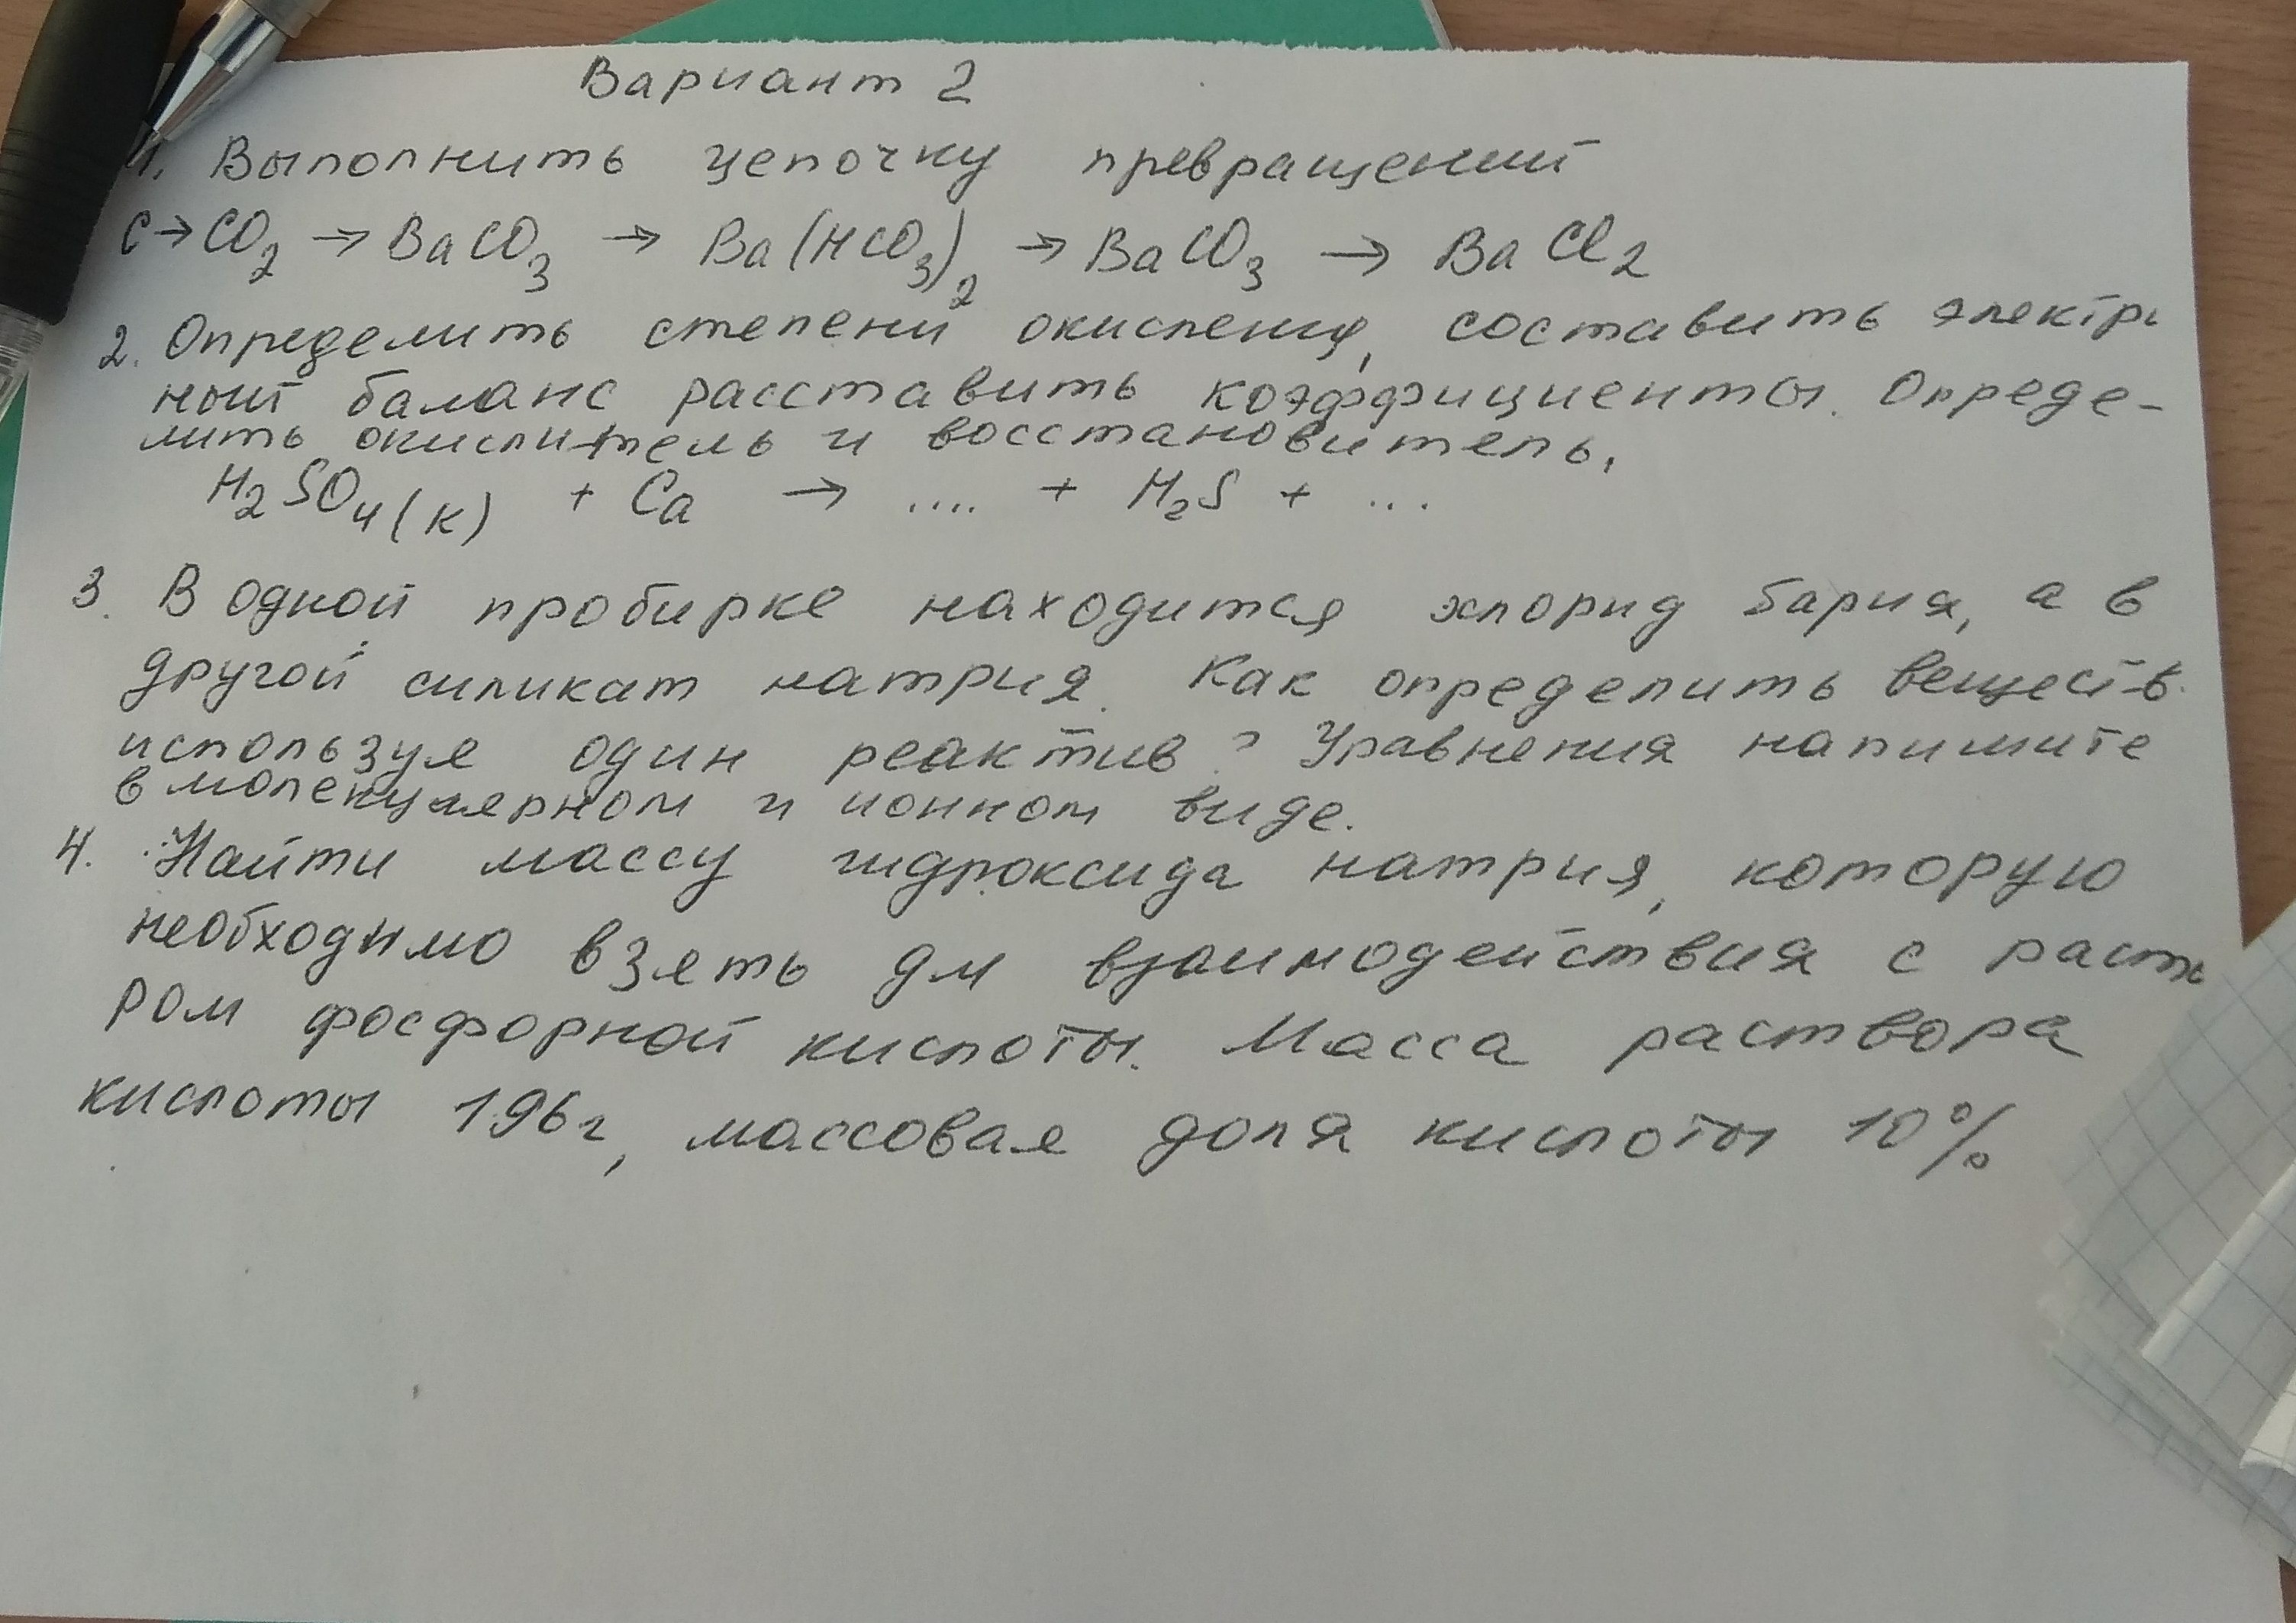 Вариант 2
1. Выполнить цепочку превращений
C → CO₂ → BaCO₃ → Ba(HCO₃)₂ → BaCO₃ → BaCl₂
2. Определить степени окисления, составить электр
ный баланс расставить коэффициенты. Опреде-
лить окислитель и восстановитель.
H₂SO₄(к) + Ca → .... + H₂S + ...
3. В одной пробирке находится хлорид бария, а в
другой силикат натрия. Как определить веществ
используя один реактив? Уравнения напишите
в молекулярном и ионном виде.
4. Найти массу гидроксида натрия, которую
необходимо взять для взаимодействия с раств
ром фосфорной кислоты. Масса раствора
кислоты 196г, массовая доля кислоты 10%